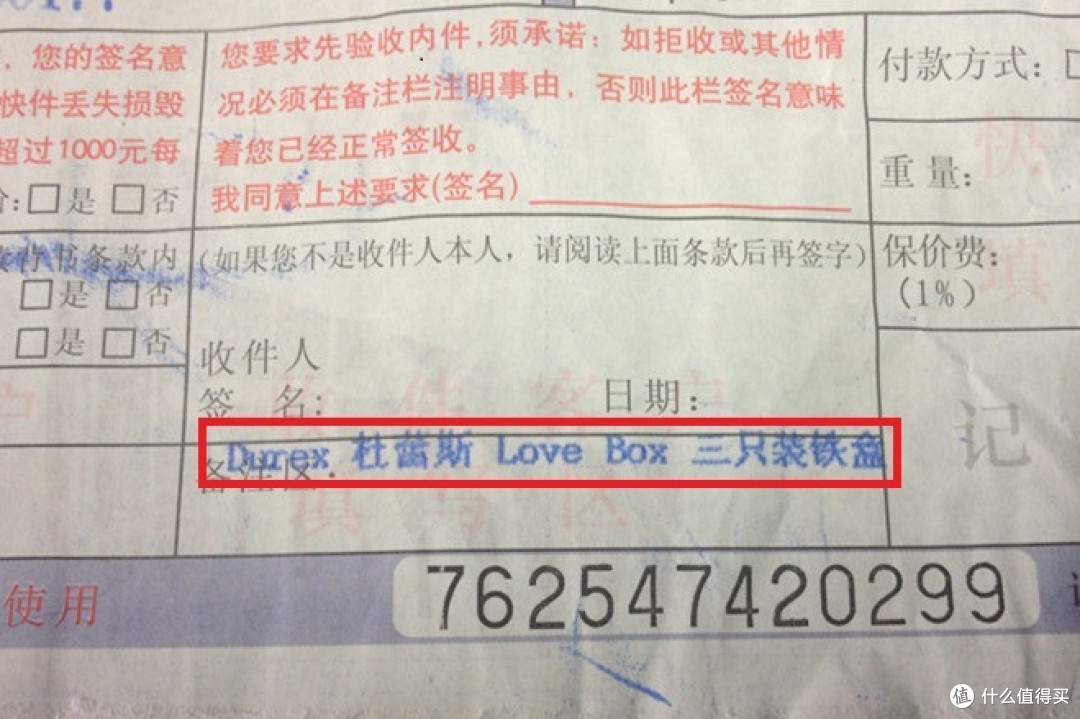 ，您的签名意
快件丢失损毁
超过1000元每
：□是 □否
书条款内
□是 □否
□是 □否
您要求先验收内件，须承诺：如拒收或其他情
况必须在备注栏注明事由，否则此栏签名意味
着您已经正常签收。
我同意上述要求(签名)
(如果您不是收件人本人，请阅读上面条款后再签字)
收件人
签 名: 日期:
Durex 杜蕾斯 Love Box 三只装铁盒
备注区:
付款方式: □
重量:
保价费:
(1%)
记
使用
762547420299
值 什么值得买